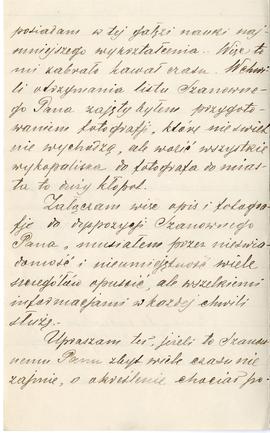 posiadam w tej gałęzi nauki naj-
mniejszego wykształcenia. Więc to
mi zabrało kawał czasu. W chwi-
li otrzymania listu Szanowne-
go Pana zajęty byłem przygoto-
waniem fotografji, które nieświet-
nie wychodzą, ale wozić wszystkie
wykopaliska do fotografa do mias-
ta to duży kłopot.
Załączam więc opis i fotogra-
fje do dyspozycji Szanownego
Pana, musiałem przez nieświa-
domość i nieumiejętność wiele
szczegółów opuścić, ale wszelkiemi
informacjami w każdej chwili
służę.
Upraszam też, jeżeli to Szanow-
nemu Panu zbyt wiele czasu nie
zajmie, o określenie chociaż po-